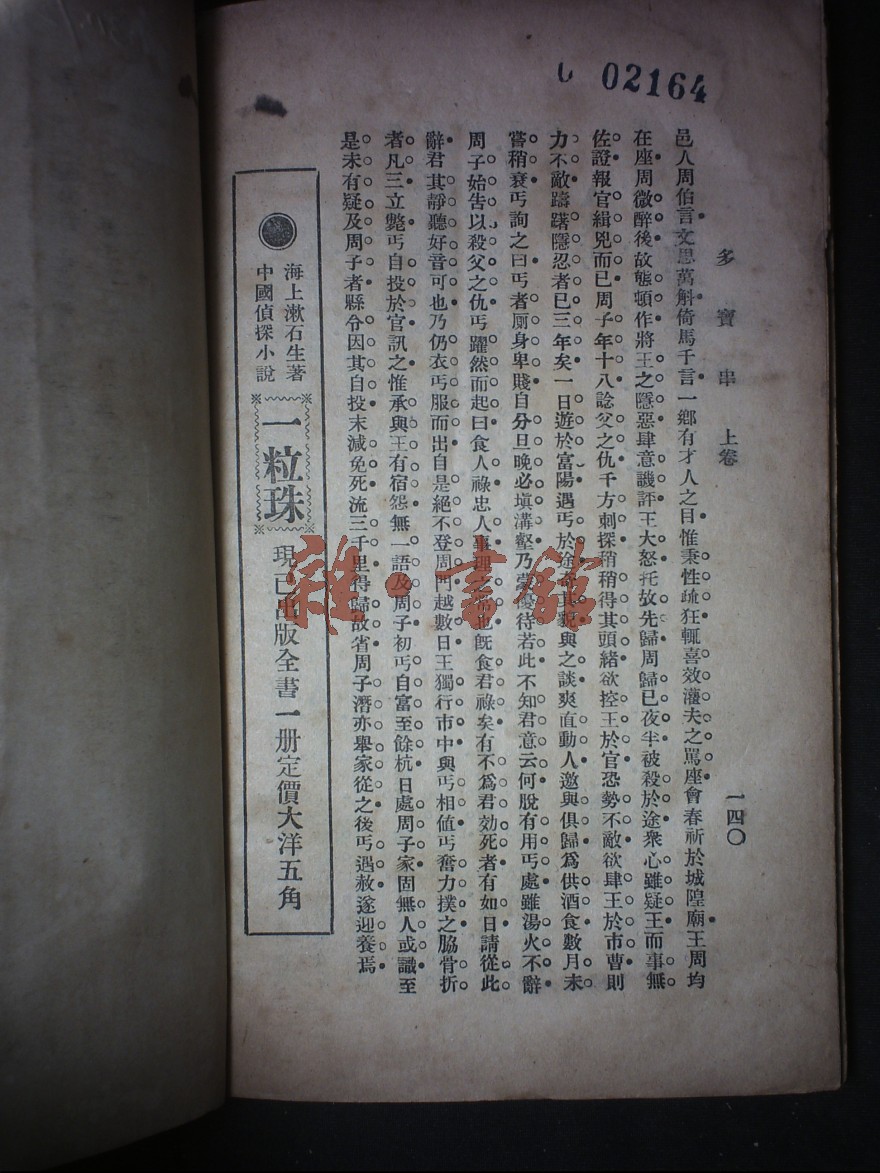 02164
多寶串 上卷
一四〇
邑人周伯言文思萬斛倚馬千言一鄉有才人之目惟秉性疏狂輒喜效灌夫之罵座會春祈於城隍廟王周均
在座周微醉後故態頓作將王之隱惡肆意譏評王大怒托故先歸周歸已夜半被殺於途衆心雖疑王而事無
佐證報官緝兇而已周子年十八諗父之仇千方刺探稍稍得其頭緒欲控王於官恐勢不敵欲肆王於市曹則
力不敵躊躇隱忍者已三年矣一日遊於富陽遇丐於途奇其貌與之談爽直動人邀與俱歸爲供酒食數月未
嘗稍衰丐詢之曰丐者厠身卑賤自分旦晚必塡溝壑乃蒙優待若此不知君意云何脫有用丐處雖湯火不辭
周子始告以殺父之仇丐躍然而起曰食人祿忠人事理之常也旣食君祿矣有不爲君効死者有如日請從此
辭君其靜聽好音可也乃仍衣丐服而出自是絕不登周門越數日王獨行市中與丐相値丐奮力撲之脇骨折
者凡三立斃丐自投於官訊之惟承與王有宿怨無一語及周子初丐自富至餘杭日處周子家固無人或識至
是未有疑及周子者縣令因其自投末減免死流三千里得歸故省周子潛亦舉家從之後丐遇赦遂迎養焉
海上漱石生著
中國偵探小說
一粒珠
現已出版全書一册定價大洋五角
雜·書館